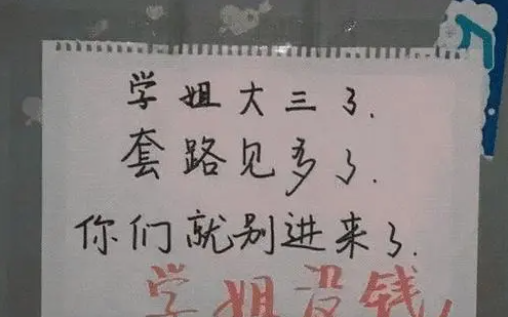 学姐大三了.
套路见多了.
你们就别进来了.
学姐没钱